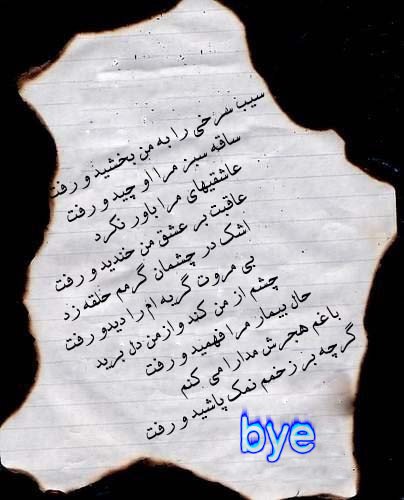 سیب سرخی را به من بخشید و رفت
ساقه سبز مرا او چید و رفت
عاشقیهای مرا باور نکرد
عاقبت بر عشق من خندید و رفت
اشک در چشمان گرمم حلقه زد
بی مروت گریه ام را دید و رفت
چشم از من کند و از من دل برید
حال بیمار مرا فهمید و رفت
با غم هجرش مدارا می کنم
گرچه بر زخمم نمک پاشید و رفت
bye